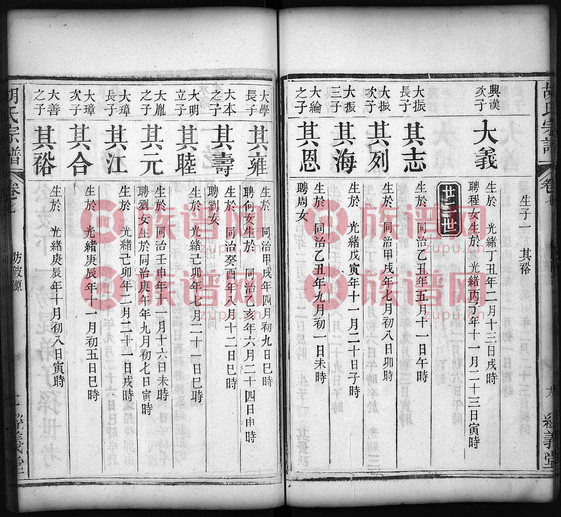 胡氏宗譜
卷七
經義堂
生子一 其裕
興漢次子
大義
生於 光緒丁丑年二月十三日戌時
聘程女生於 光緒丙子年十一月二十三日寅時
廿三世
大振長子
其志
生於 同治乙丑年五月十一日午時
大振次子
其列
生於 同治甲戌年七月初八日卯時
大振三子
其海
生於 光緒戊寅年十一月二十日子時
大綸之子
其恩
生於 同治乙丑年九月初一日未時
聘周女
大學長子
其雍
生於 同治甲戌年四月初九日巳時
聘何女生於 同治乙亥年六月二十四日申時
大本之子
其壽
生於 同治癸酉年八月十二日巳時
聘劉女
大明立子
其睦
生於 光緒己卯年二月二十一日巳時
大胤之子
其元
生於 同治壬申年十一月十六日未時
聘劉女生於 同治庚午年九月初七日寅時
大璋長子
其江
生於 光緒己卯年二月二十一日戌時
大璋次子
其合
生於 光緒庚辰年十一月初五日巳時
大善之子
其裕
生於 光緒庚辰年十月初八日寅時
胡氏宗譜
卷七
經義堂
族谱网
zupu.cn